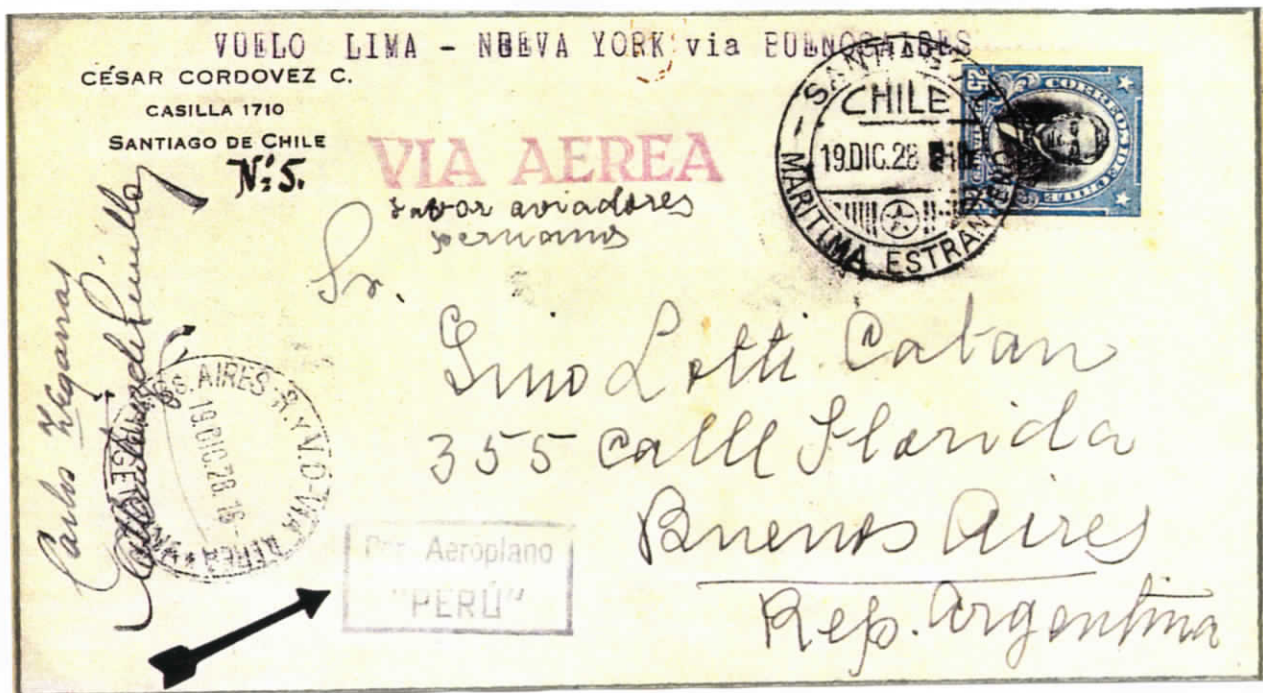 VUELO LIMA - NUEVA YORK via BUENOS AIRES
CÉSAR CORDOVEZ C.
CASILLA 1710
SANTIAGO DE CHILE
Nº 5.
VIA AEREA
favor aviadores
peruanos
SANTIAGO
CHILE
19.DIC.28
MARITIMA ESTRANJERO
CORREOS DE CHILE
Sr.
Gino Lotti Catan
355 Calle Florida
Buenos Aires
Rep. Argentina
Carlos Zegarra
Bs. AIRES - R. Y V. D. E. VIA AEREA
19.DIC.28. 16
Por Aeróplano
"PERÚ"